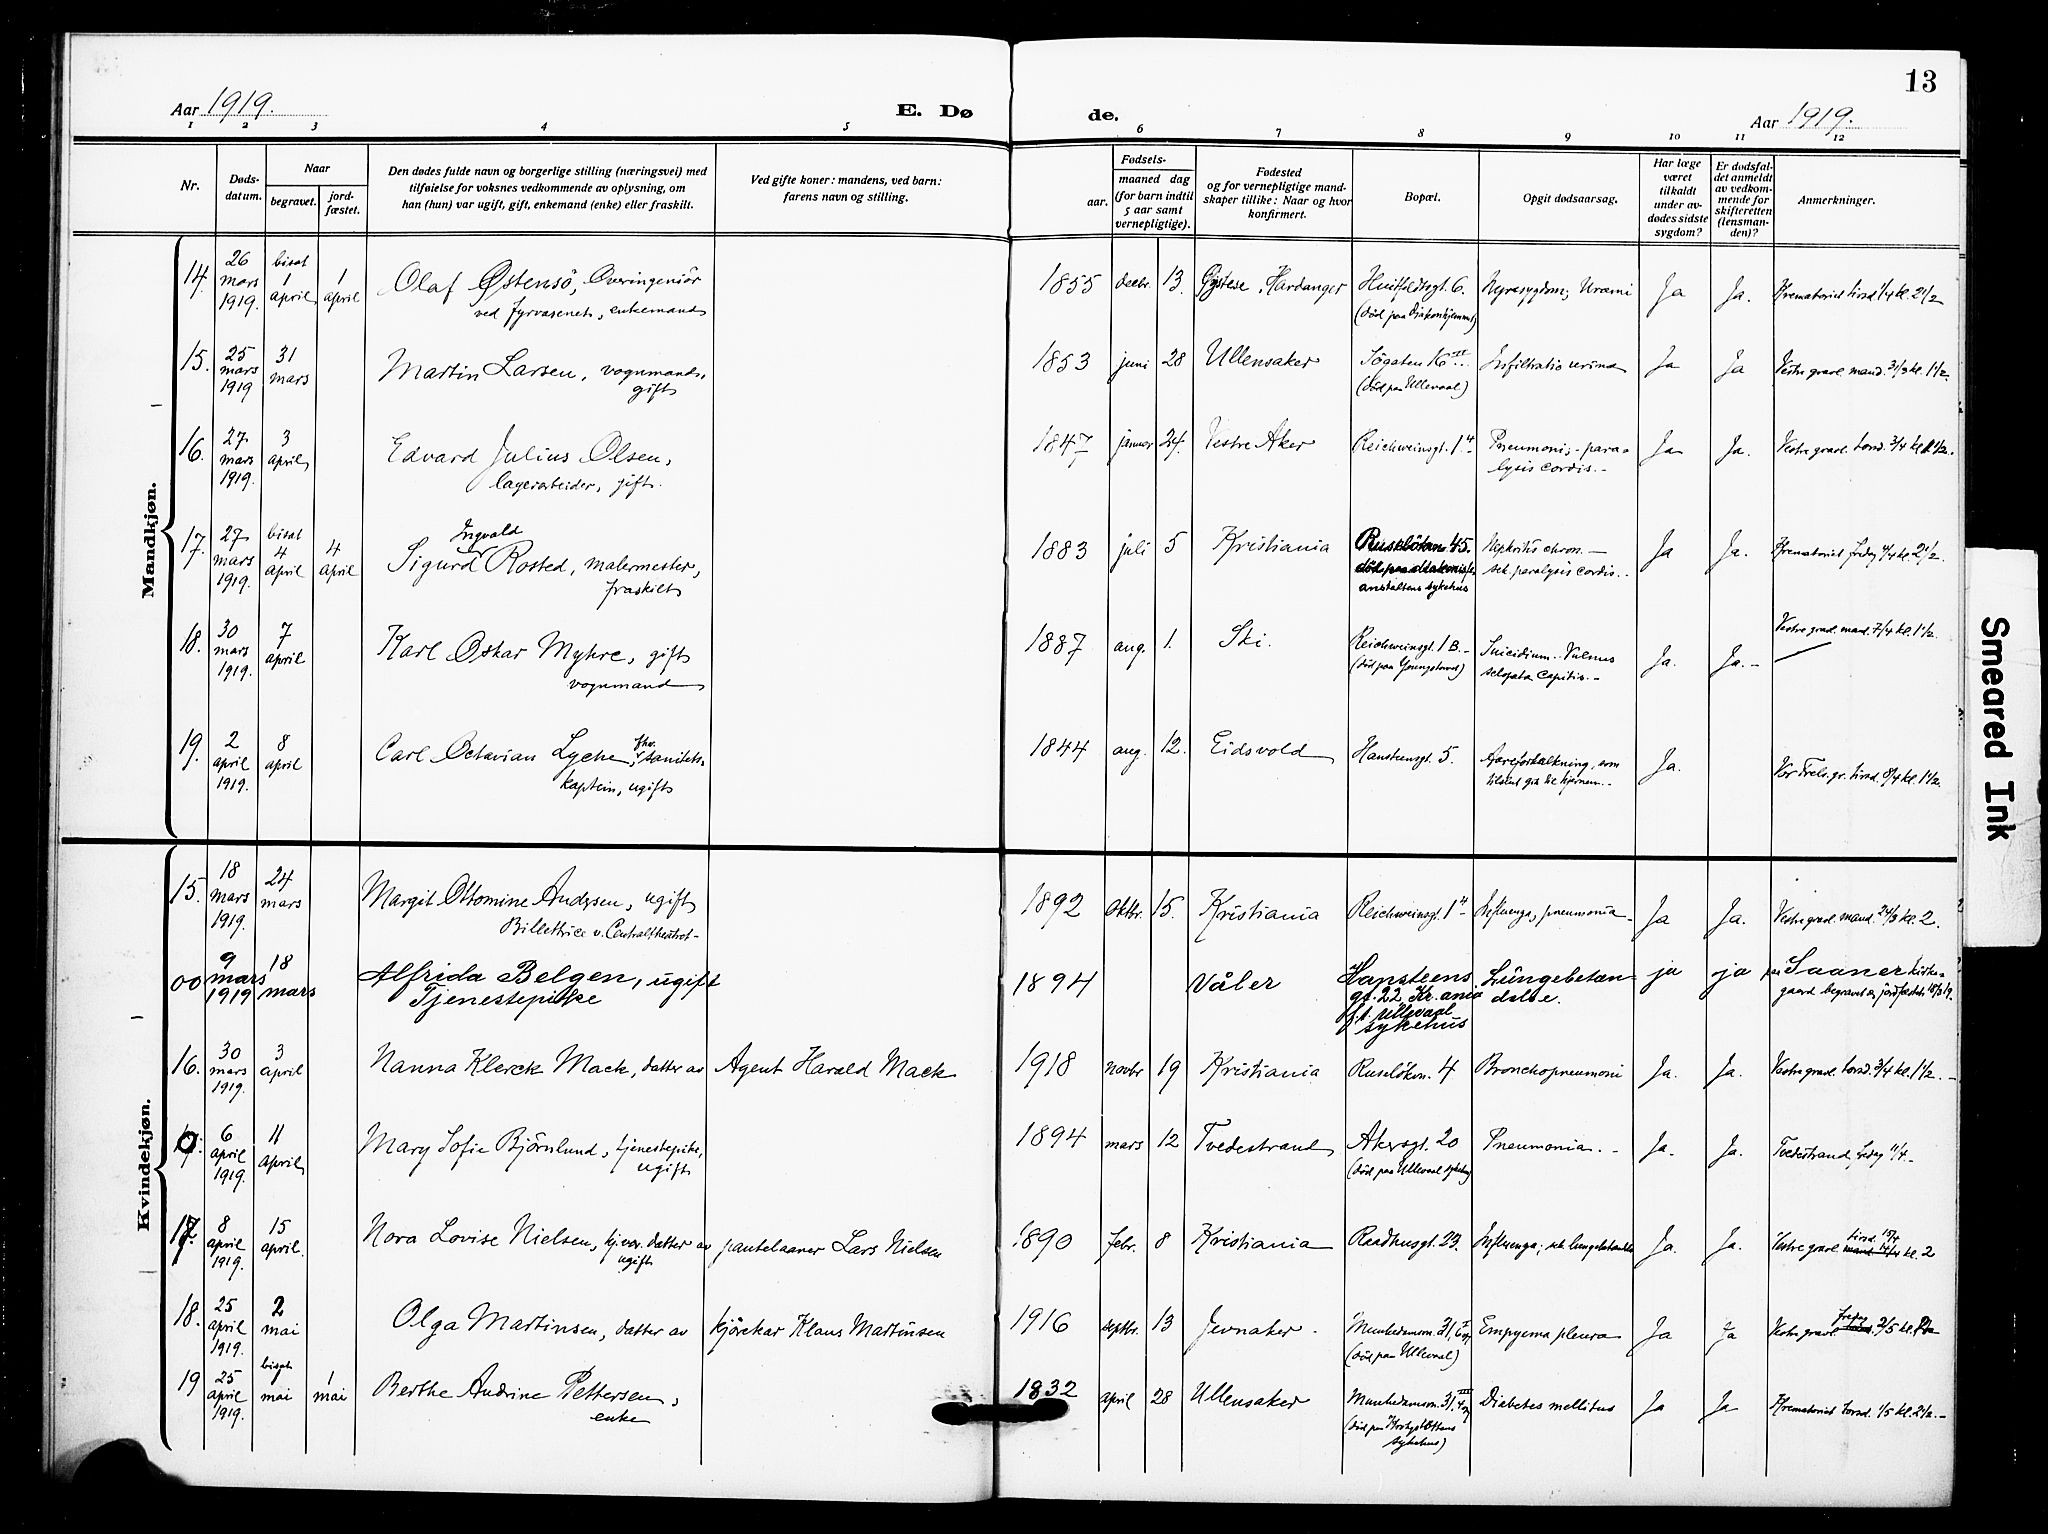 13
Aar 1919.
E. Dø
de.
Aar 1919.
1 2 3 4 5 6 7 8 9 10 11 12
Nr.
Døds-
datum.
Naar
begravet.
jord-
fæstet.
Den dødes fulde navn og borgerlige stilling (næringsvei) med
tilføielse for voksnes vedkommende av oplysning, om
han (hun) var ugift, gift, enkemand (enke) eller fraskilt.
Ved gifte koner: mandens, ved barn:
farens navn og stilling.
Fødsels-
aar.
maaned dag
(for barn indtil
5 aar samt
vernepligtige).
Fødested
og for vernepligtige mand-
skaper tillike: Naar og hvor
konfirmert.
Bopæl.
Opgit dødsaarsag.
Har læge
været
tilkaldt
under av-
dødes sidste
sygdom?
Er dødsfal-
det anmeldt
av vedkom-
mende for
skifteretten
(lensman-
den)?
Anmerkninger.
Mandkjøn.
14. 26 mars 1919. bisat 1 april 1 april
Olaf Østensö, Overingeniör
ved fyrvæsenet, enkemand
1855 decbr. 13. Øystese, Hardanger Huitfeldtsgt. 6.
(död paa Diakonhjemmet)
Nyresygdom; Uræmi Ja Ja. Krematoriet tirsd 1/4 kl. 2 1/2
15. 25 mars 1919 31 mars
Martin Larsen, vognmand,
gift
1853 juni 28 Ullensaker Sögaten 16 III
(död paa Ullevaal)
Infiltratio urina Ja Ja Vestre gravl. mand. 31/3 kl. 1 1/2.
16. 27 mars 1919. 3 april
Edvard Julius Olsen,
lagerarbeider, gift.
1847 januar 24. Vestre Aker Reichweinsgt. 1 4
Pneumoni; - para-
lysis cordis. -
Ja Ja. Vestre gravl. torsd. 3/4 kl. 1 1/2.
17. 27 mars 1919. bisat 4 april 4 april
Ingvald
Sigurd Rosted, malermester,
fraskilt
1883 juli 5 Kristiania Ruselökvn 45.
död paa diakonisse
anstaltens sykehus
Nephritis chron. -
sek. paralysis cordis. -
Ja Ja. Krematoriet fredag 4/4 kl 2 1/2.
18. 30 mars 1919. 7 april
Karl Oskar Myhre, gift
vognmand
1887 aug. 1. Ski. Reichweinsgt. 1 B. -
(död paa Youngstorvet)
Suicidium. - Vulnus
sclopeta capitis. -
Ja. Ja. - Vestre gravl. mand. 7/4 kl. 1 1/2.
19. 2 april 1919. 8 april
Carl Octavian Lyche, fhv. sanitets-
kaptein, ugift
1844 aug. 12. Eidsvold Hansteensgt. 5.
Aareforkalkning, som
tilslut gik til hjernen. -
Ja. Vor Frels. gr. tirsd. 8/4 kl. 1 1/2.
Kvindekjøn.
15. 18 mars 1919. 24 mars
Margit Ottomine Andersen, ugift
Billettrice v. Centraltheatret -
1892 oktbr. 15. Kristiania Reichweinsgt. 1 4 - Influenza, pneumonia - Ja Ja. Vestre gravl. mand. 24/3 kl. 2.
00 9 mars 1919 18 mars
Alfrida Belgen, ugift
Tjenestepike
1894 Våler Hansteens
gt. 22 Kr.ania
f.t. Ullevaal
sykehus
Lungebetæn
delse.
ja ja paa Saaner kirke-
gaard begravet og jordfæstet 18/3 19.
16. 30 mars 1919. 3 april
Nanna Klerck Mack, datter av Agent Harald Mack
1918 novbr 19 Kristiania Ruselökvn. 4 Bronchopneumoni Ja. Ja. Vestre gravl. torsd. 3/4 kl. 1 1/2. -
0. 6 april 1919. 11 april
Mary Sofie Björnlund, tjenestepike,
ugift
1894 mars 12 Tvedestrand Akersgt. 20
(död paa Ullevaal sykehus)
Pneumonia. - Ja. Ja. Tvedestrand fredag 11/4 -
17. 8 april 1919. 15 april.
Nora Lovise Nielsen, hj.vær. datter av pantelaaner Lars Nielsen
ugift
1890 febr. 8 Kristiania Raadhusgt. 23. Influenza; sek. lungebetændelse Ja. Ja.
tirsd. 15/4
Vestre gravl. mand 14/4 kl. 2
18. 25 april 1919. 2 mai
Olga Martinsen, datter av kjörekar Klaus Martinsen
1916 septbr. 13 Jevnaker. Munkedamsvn. 31,
(död paa Ullevaal)
Empyema pleura Ja Ja
fredag
Vestre gravl. 2/5 kl.
19 25 april 1919. bisat mai 1 mai
Berthe Andrine Pettersen,
enke
1832 april 28 Ullensaker Munkedamsvn. 31. III
(död paa
sykehus)
Diabetes mellitus Ja Ja Krematoriet torsd. 1/5 kl. 2 1/2. -
Smeared Ink